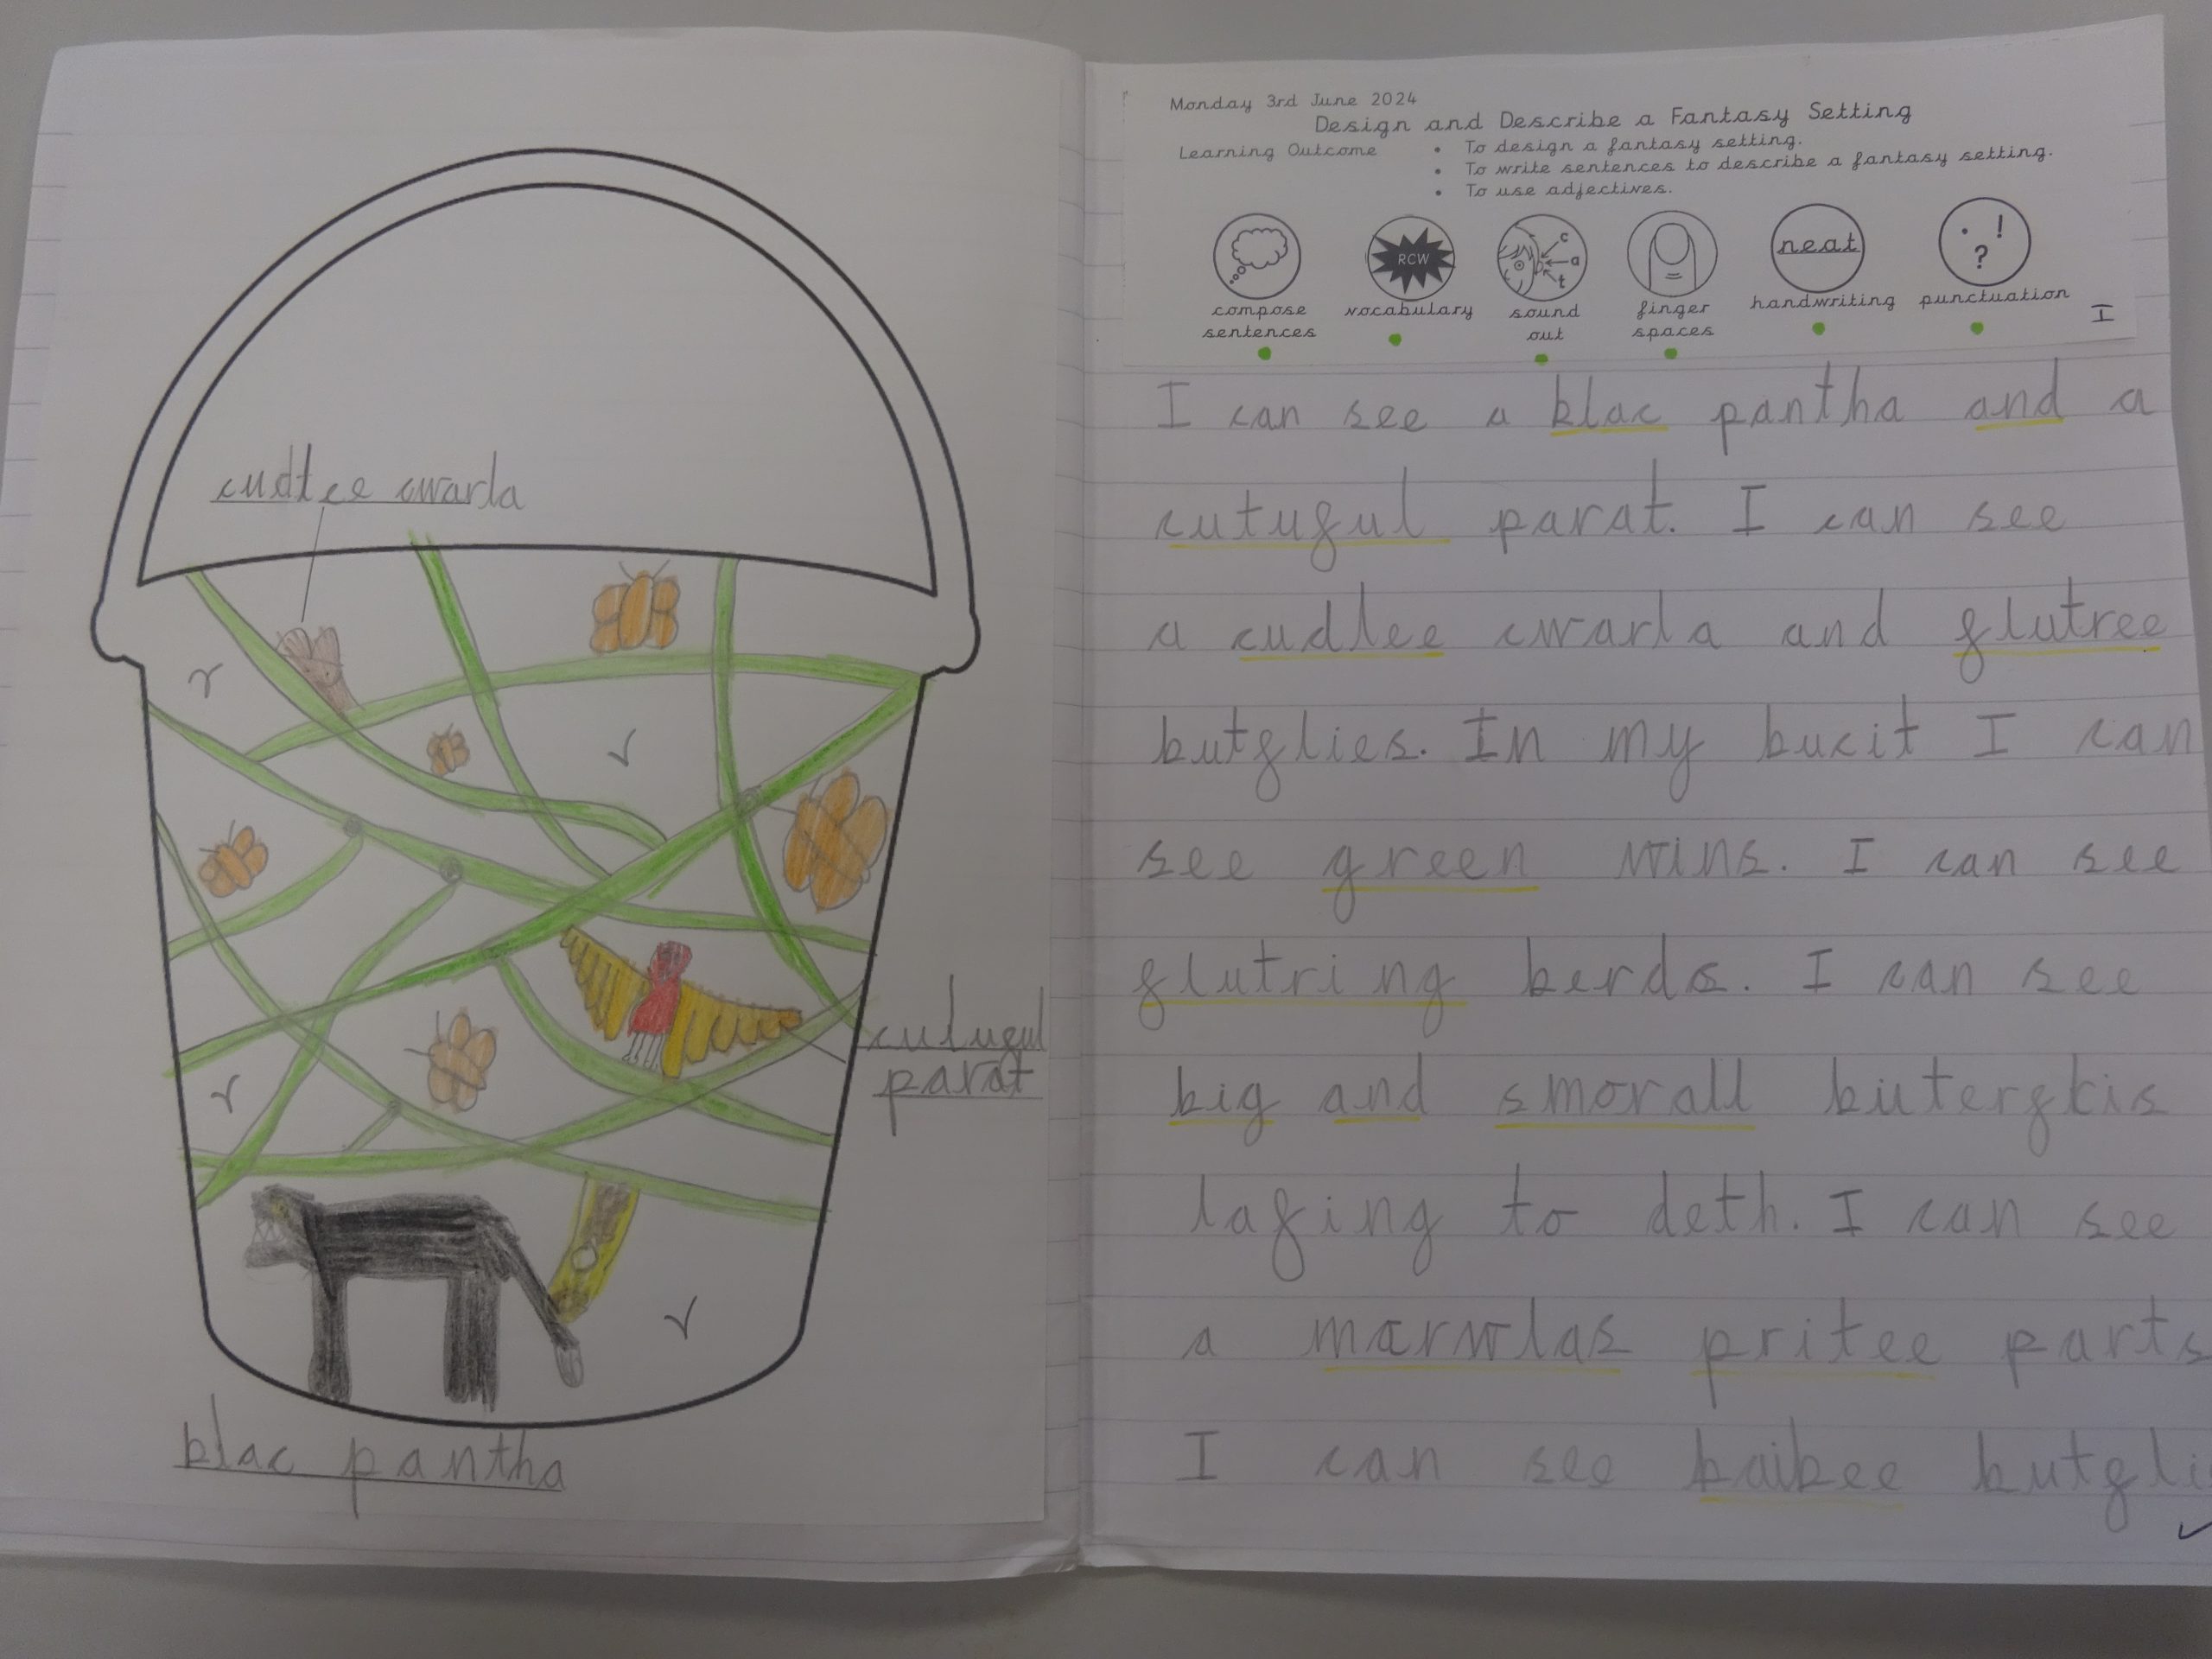 cudlee cwarla
cutuful
parat
blac pantha
Monday 3rd June 2024
Design and Describe a Fantasy Setting
Learning Outcome
• To design a fantasy setting.
• To write sentences to describe a fantasy setting.
• To use adjectives.
RCW
c
a
t
neat
. ! ?
compose sentences
vocabulary
sound out
finger spaces
handwriting
punctuation
I
I can see a blac pantha and a
cutuful parat. I can see
a cudlee cwarla and flutree
butflies. In my bucit I can
see green vins. I can see
flutring berds. I can see
big and smorall
lafing to deth. I can see
a marvlas pritee parts
I can see baibee